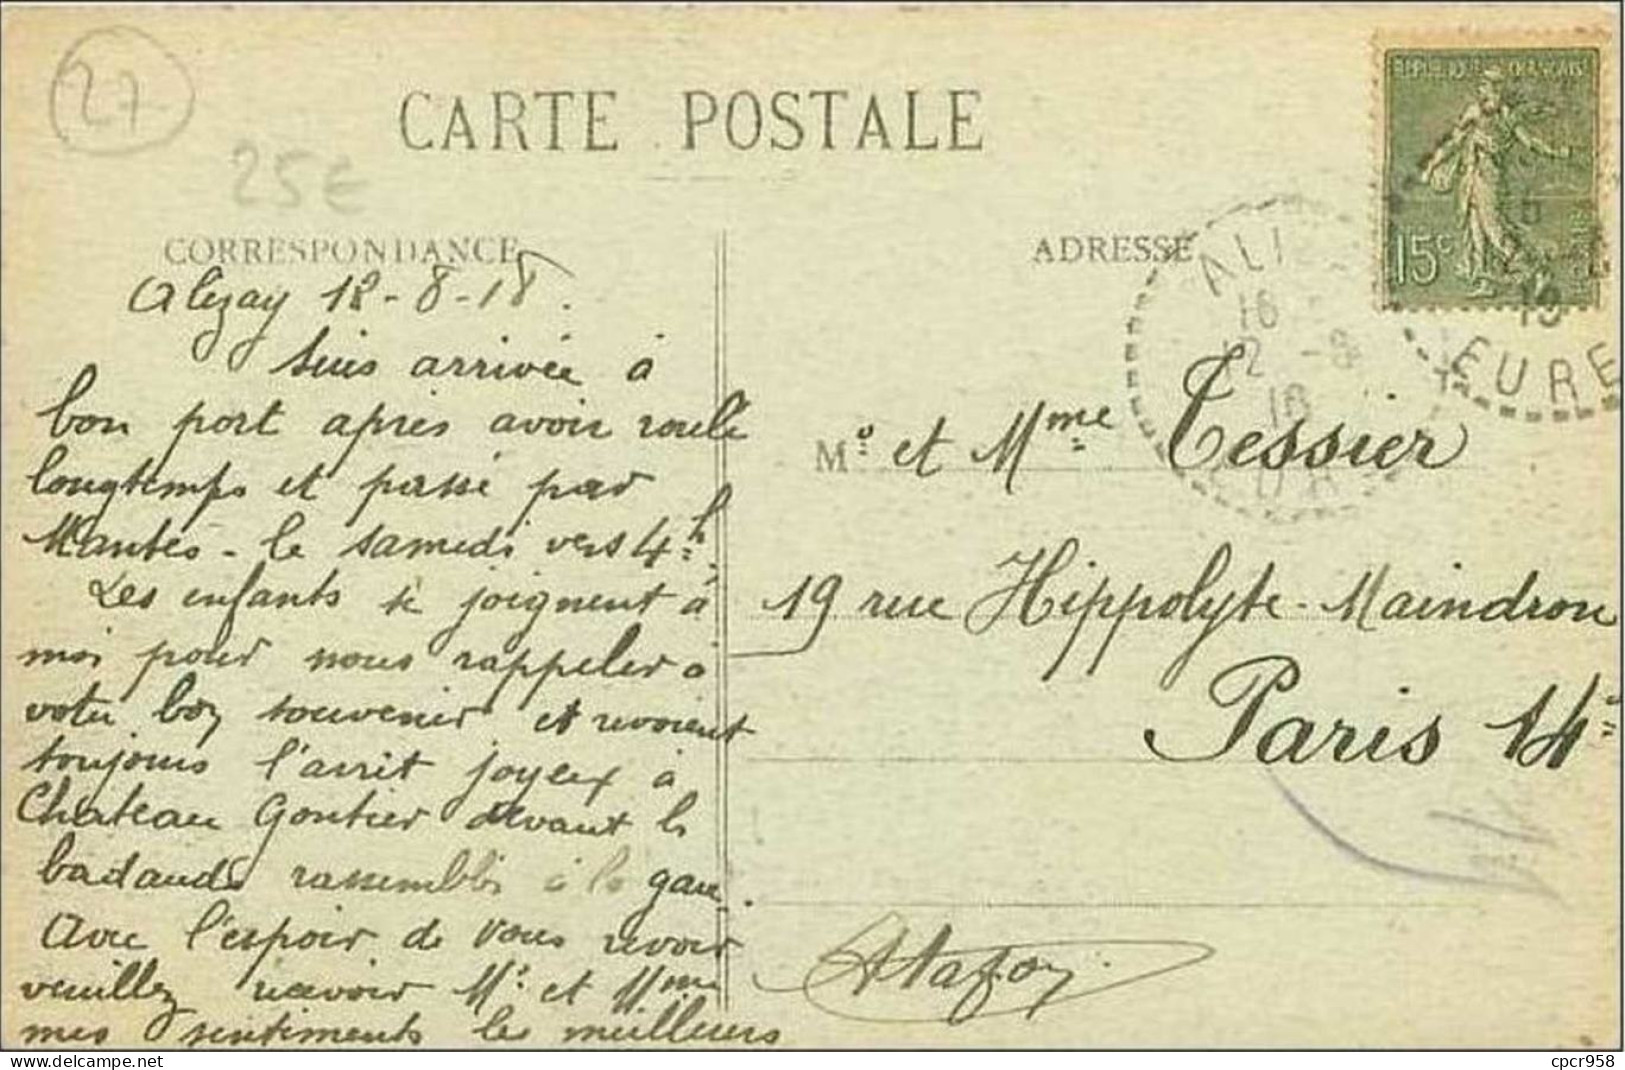 27
25€
CARTE POSTALE
REPUBLIQUE FRANCAISE
15c
CORRESPONDANCE
ADRESSE
ALI
16
12 -8
18
EURE
Alizay 12-8-18.
Suis arrivée à
bon port après avoir roulé
longtemps et passé par
Mantes - le samedi vers 4h.
Les enfants se joignent à
moi pour nous rappeler à
votre bon souvenir et revoient
toujours l'arrêt joyeux à
Chateau Gontier devant les
badauds rassemblés à la gare.
Avec l'espoir de vous revoir
veuillez recevoir Mr et Mme
mes sentiments les meilleurs
Mr et Mme Tessier
19 rue Hippolyte-Maindron
Paris 14e
delcampe.net
cpcr958